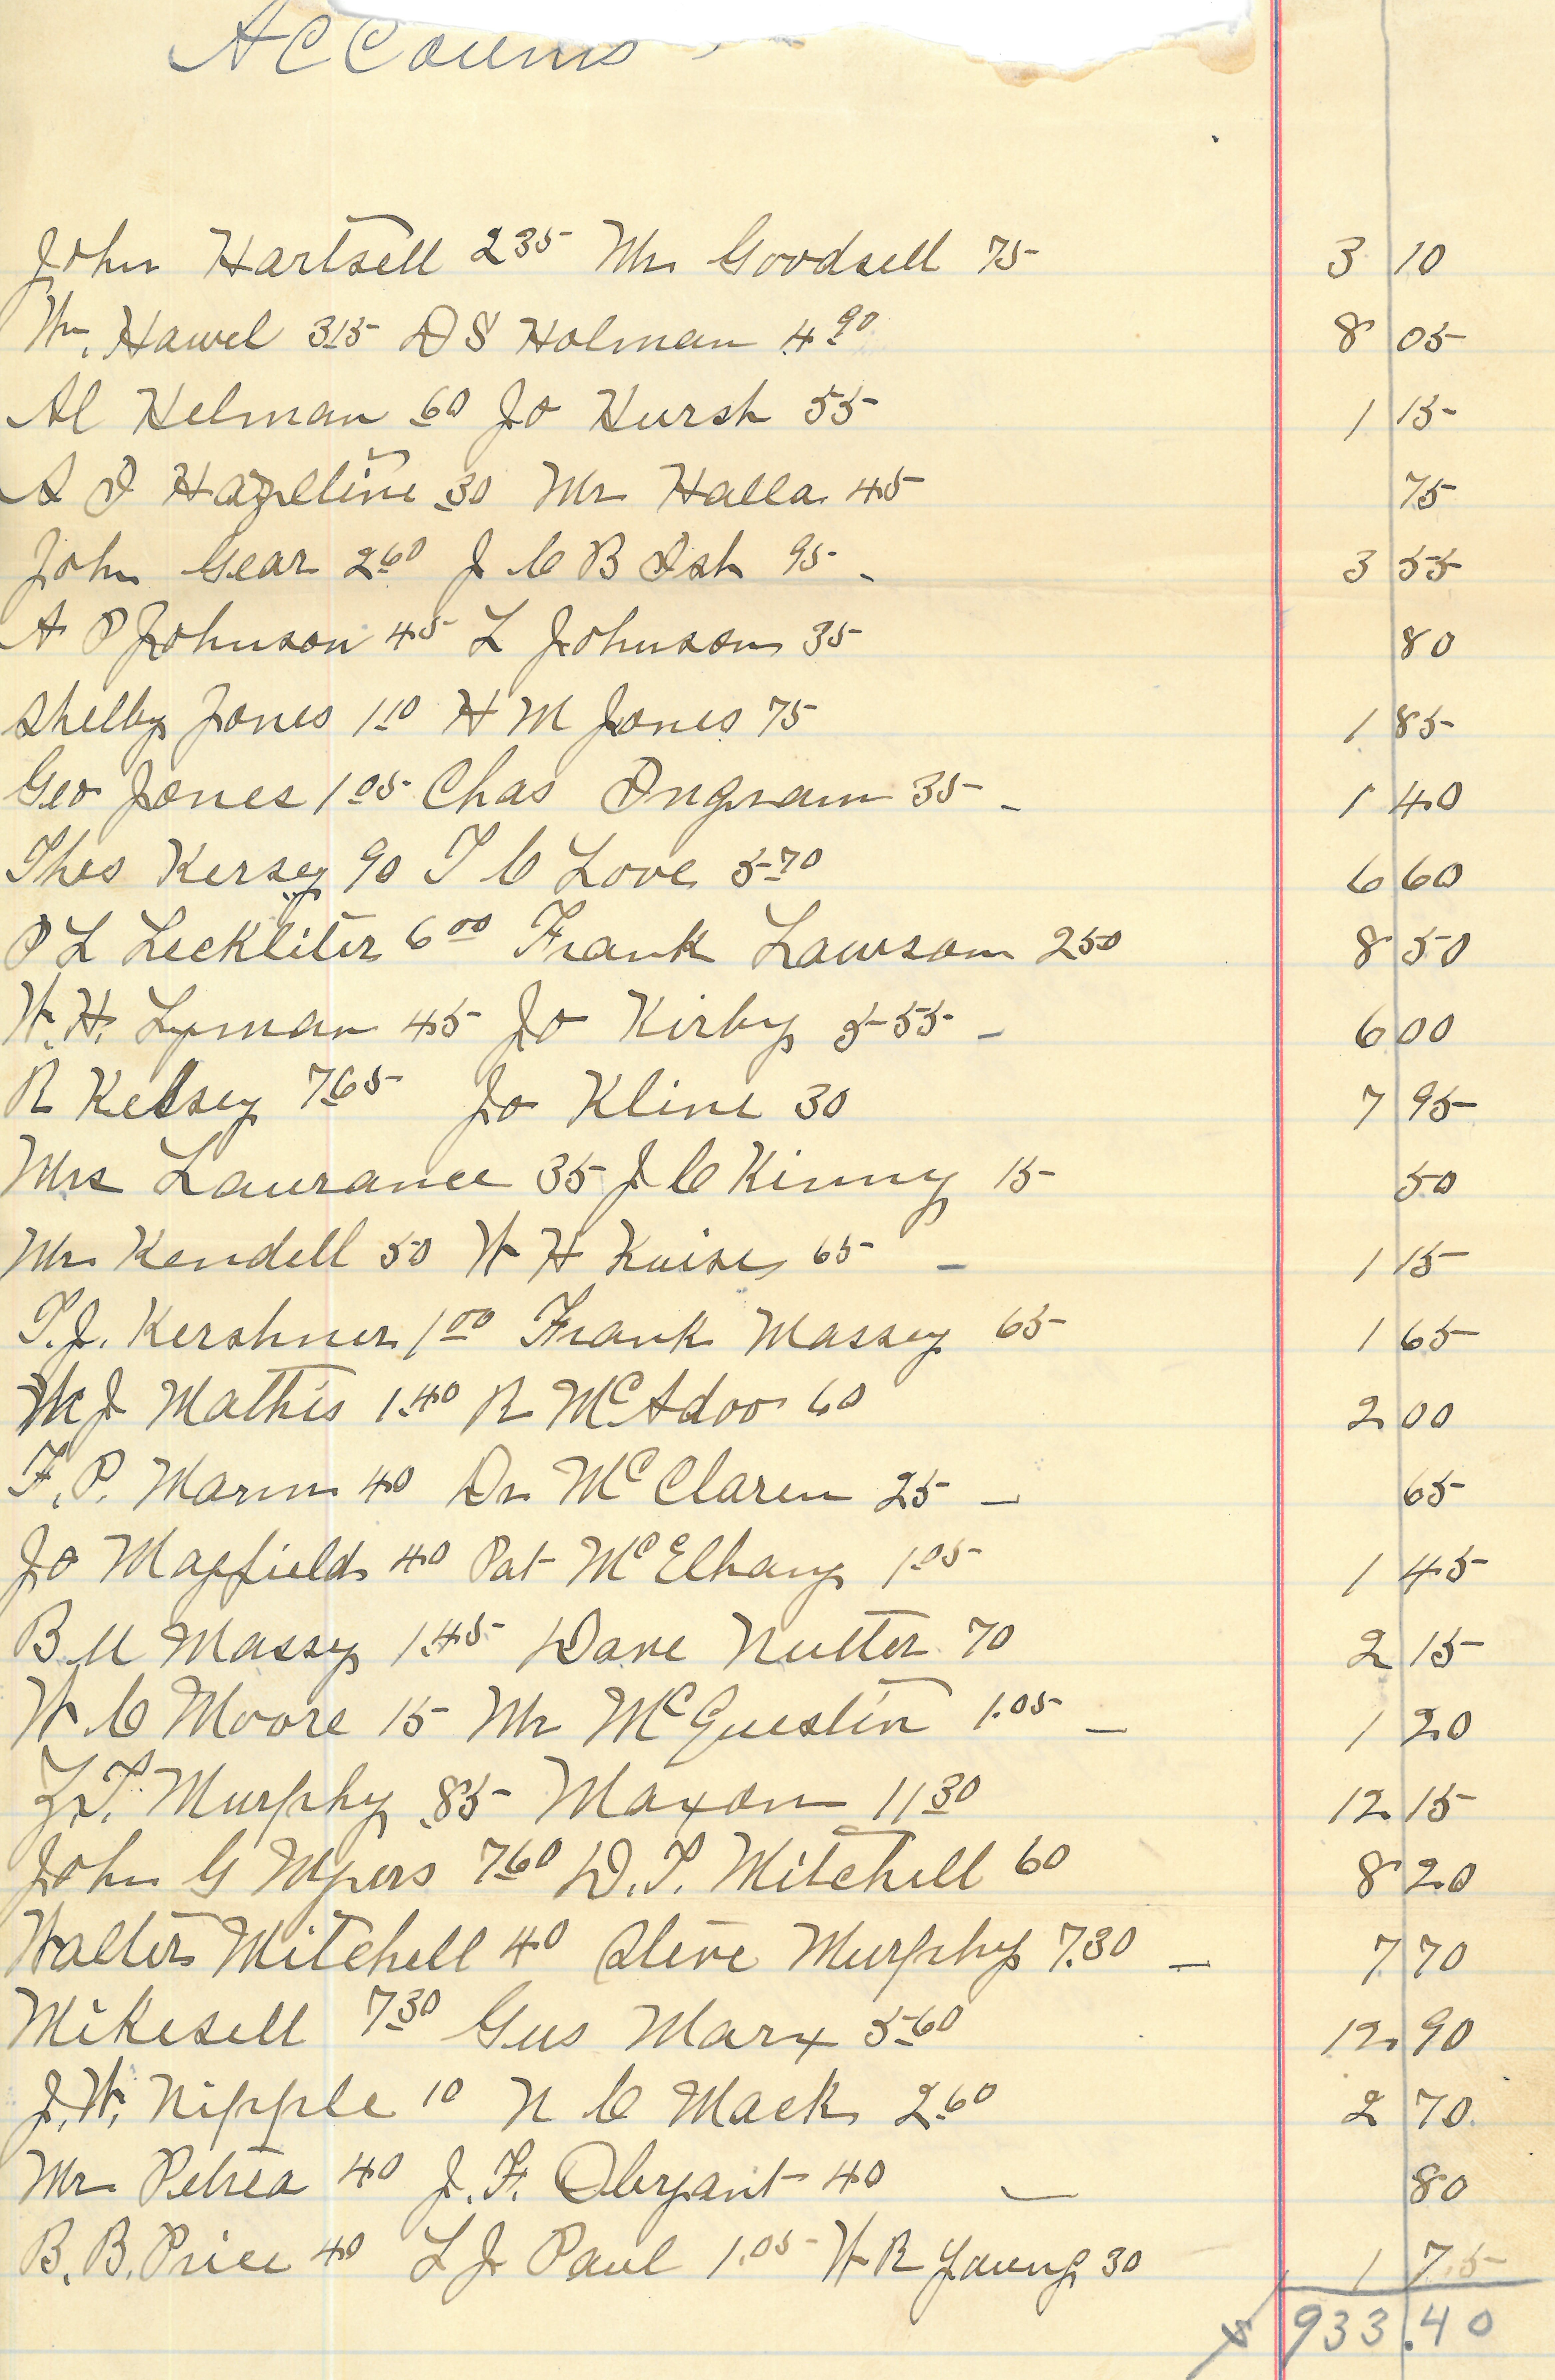 Accounts
John Hartsell 2 35 Mr Goodsell 75 3 10
Wm. Hawel 3 15 D S Holman 4 90 8 05
Al Helman 60 Jo Hursh 55 1 15
A I Hazeltine 30 Mr Halla 45 75
John Gear 2 60 J C B Ish 95 - 3 55
A P Johnson 45 L Johnson 35 80
Shelby Jones 1 10 H M Jones 75 1 85
Geo Jones 1 05 Chas Ingram 35 - 1 40
Thos Kersey 90 T C Love 5 70 6 60
P L Leckliter 6 00 Frank Lawson 2 50 8 50
W. H. Lyman 45 Jo Kirby 5 55 - 6 00
R Kelsey 7 65 Jo Kline 30 7 95
Mrs Laurance 35 J C Kinny 15 50
Mr Kendell 50 W H Kuise 65 - 1 15
T. J. Kershner 1 00 Frank Massey 65 1 65
W J Mathis 1.40 R McAdoo 60 2 00
F. P. Marin 40 Dr McClaren 25 - 65
Jo Mayfield 40 Pat McElhany 1.05 1 45
B M Massey 1.45 Dave Nutter 70 2 15
W C Moore 15 Mr McQuestin 1.05 - 1 20
Z. T. Murphy .85 Maxon 11 30 12 15
John G Myers 7 60 D. T. Mitchell 60 8 20
Walter Mitchell 40 Steve Murphy 7.30 - 7 70
Mikesell 7 30 Gus Marx 5 60 12 90
J. W. Nipple 10 N C Mack 2.60 2 70
Mr Petrea 40 J. F. Obryant 40 - 80
B. B. Price 40 L J Paul 1.05 W R Young 30 1 75
933.40